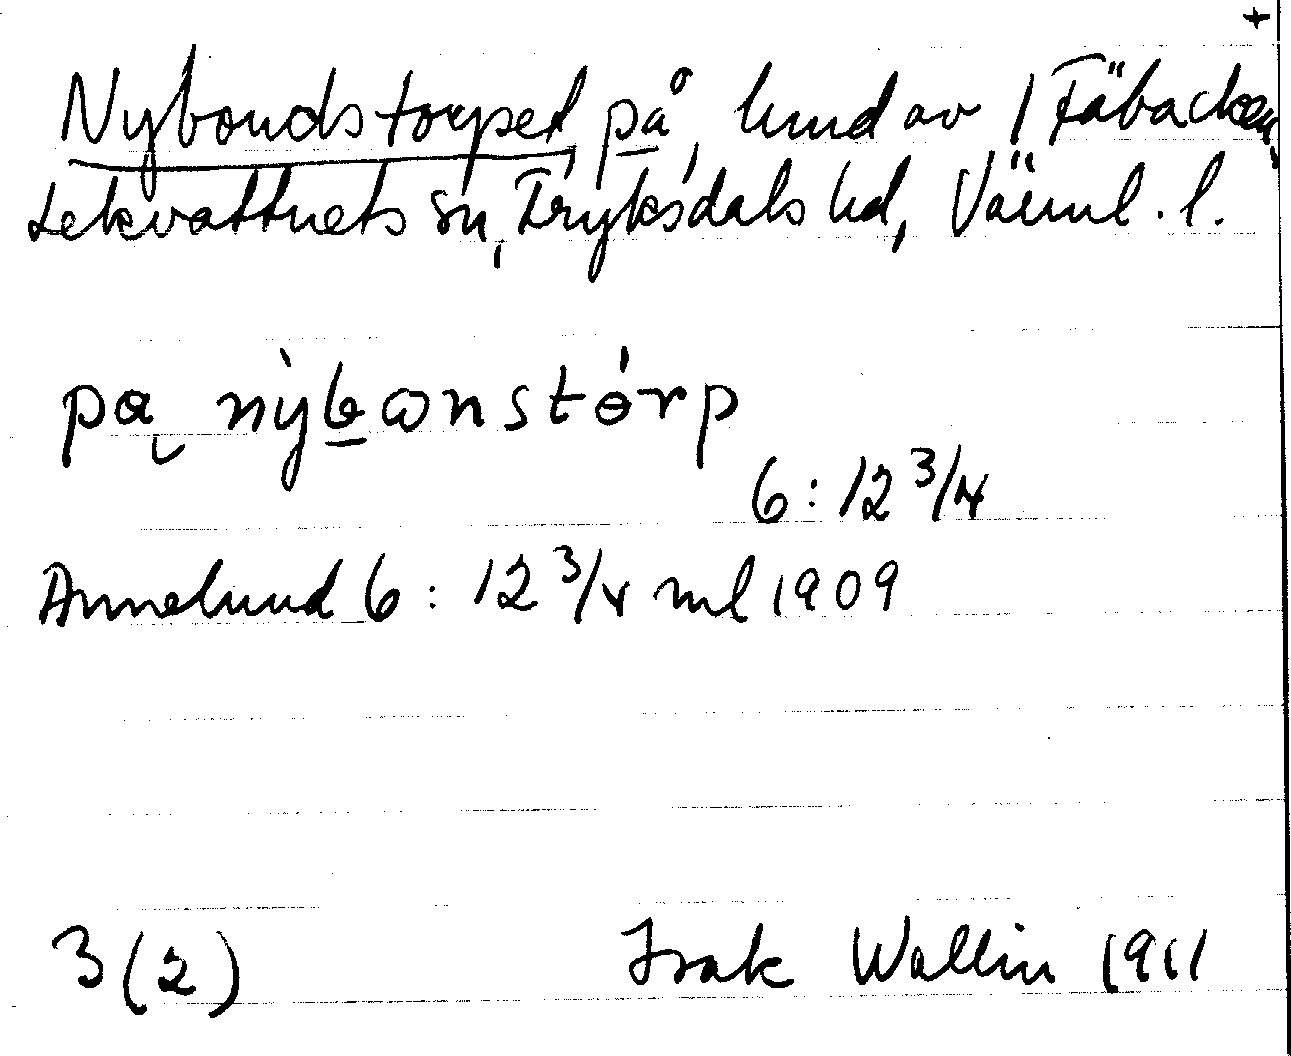 +
Nybondstorpet, på, hmd av 1 Fäbacken,
Lekvattnets sn, Fryksdals hd, Värml. l.
pa nỳbωnstórp
6:12 3/4
Annelund 6: 12 3/4 ml 1909
3 (2) Isak Wallin 1911